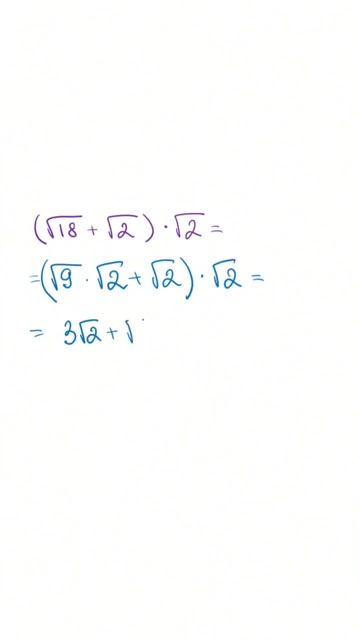 (√18 + √2) · √2 =
= (√9 · √2 + √2) · √2 =
= 3√2 + √